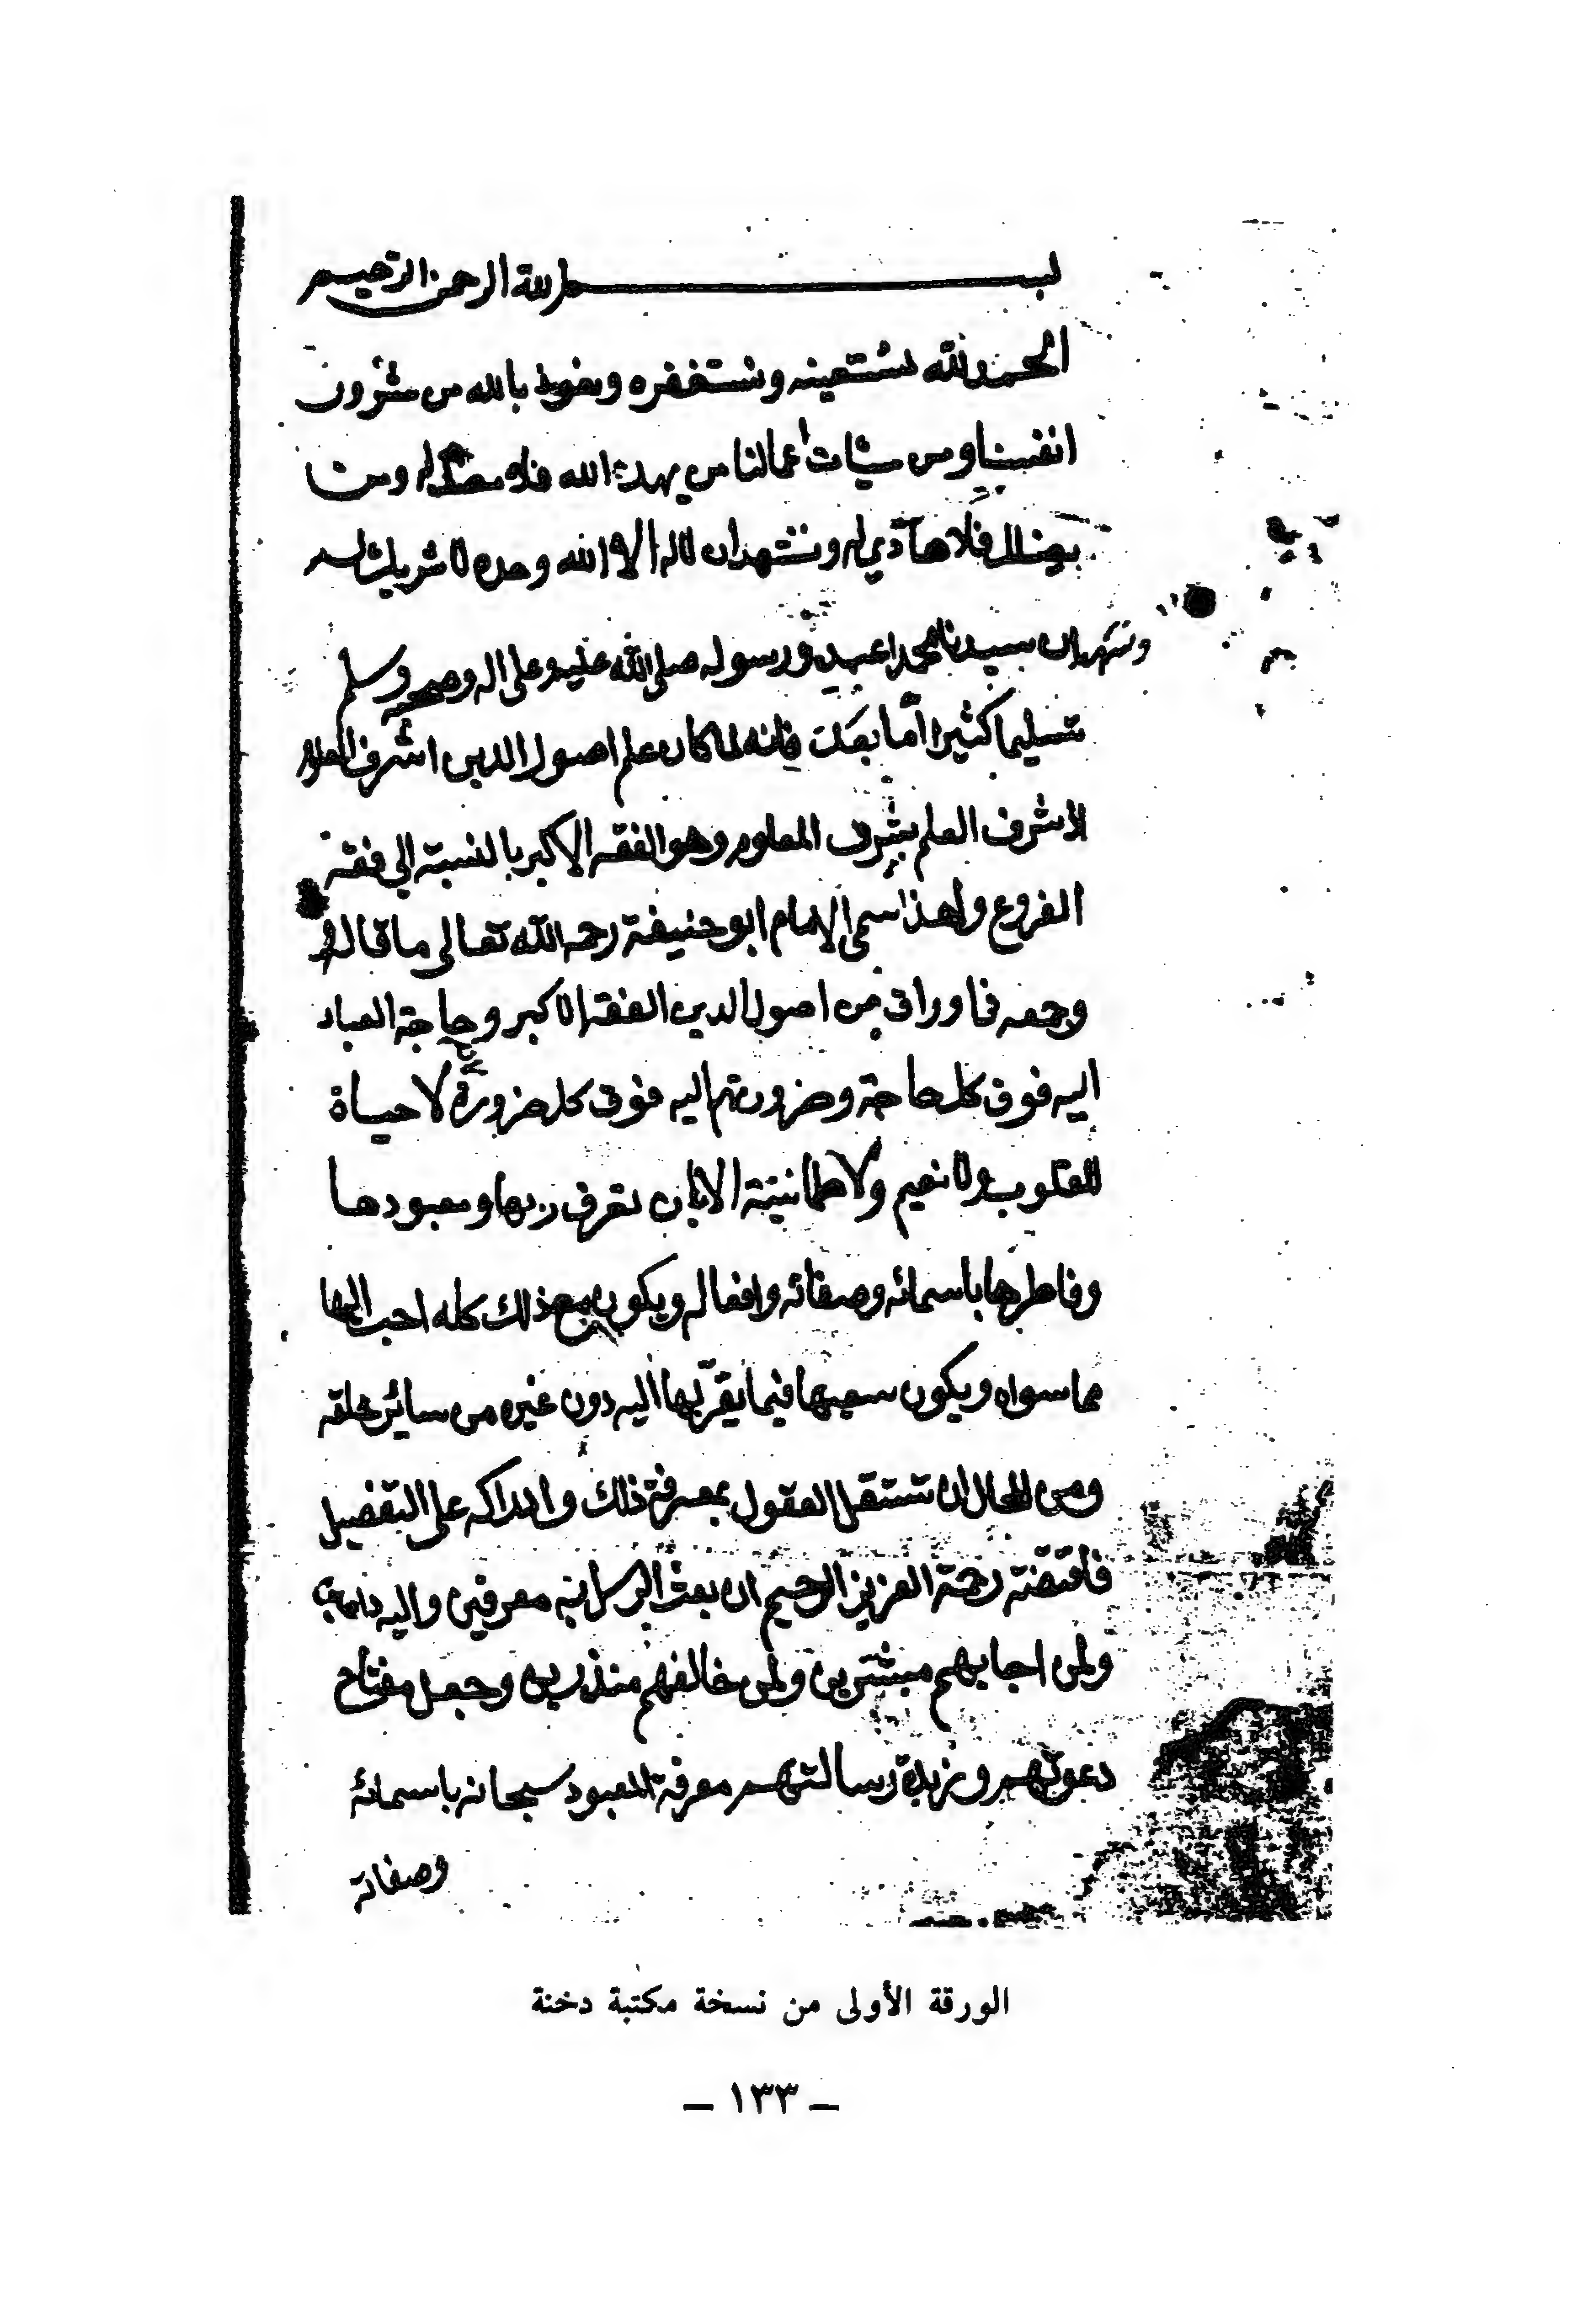 بسم الله الرحمن الرحيم
الحمد لله نستعينه ونستغفره ونعوذ بالله من شرور
انفسنا ومن سيئات اعمالنا من يهده الله فلا مضل له ومن
يضلل فلا هادي له ونشهد ان لا اله الا الله وحده لا شريك له
ونشهد ان سيدنا محمدا عبده ورسوله صلى الله عليه وعلى اله وصحبه وسلم
تسليما كثيرا أما بعد فانه لما كان علم اصول الدين اشرف العلوم
لاشرف العلم بشرف المعلوم وهو الفقه الاكبر بالنسبة الى فقه
الفروع ولهذا سمى الامام ابو حنيفة رحمه الله تعالى ما قاله
وجمعه في اوراق من اصول الدين الفقه الاكبر وحاجة العباد
اليه فوق كل حاجة وضرورتهم اليه فوق كل ضرورة لا حياة
للقلوب ولا نعيم ولا طمانينة الا بان تعرف ربها ومعبودها
وفاطرها باسمائه وصفاته وافعاله ويكون مع ذلك كله احب اليها
مما سواه ويكون سعيها فيما يقربها اليه دون غيره من سائر خلقه
ومن المحال ان تستقل العقول بمعرفة ذلك وادراكه على التفصيل
فاقتضت رحمة العزيز الرحيم ان بعث الرسل به معرفين واليه داعين
ولمن اجابهم مبشرين ولمن خالفهم منذرين وجعل مفتاح
دعوتهم وزبدة رسالتهم معرفة المعبود سبحانه باسمائه
وصفاته
الورقة الأولى من نسخة مكتبة دخنة
– ١٣٣ –